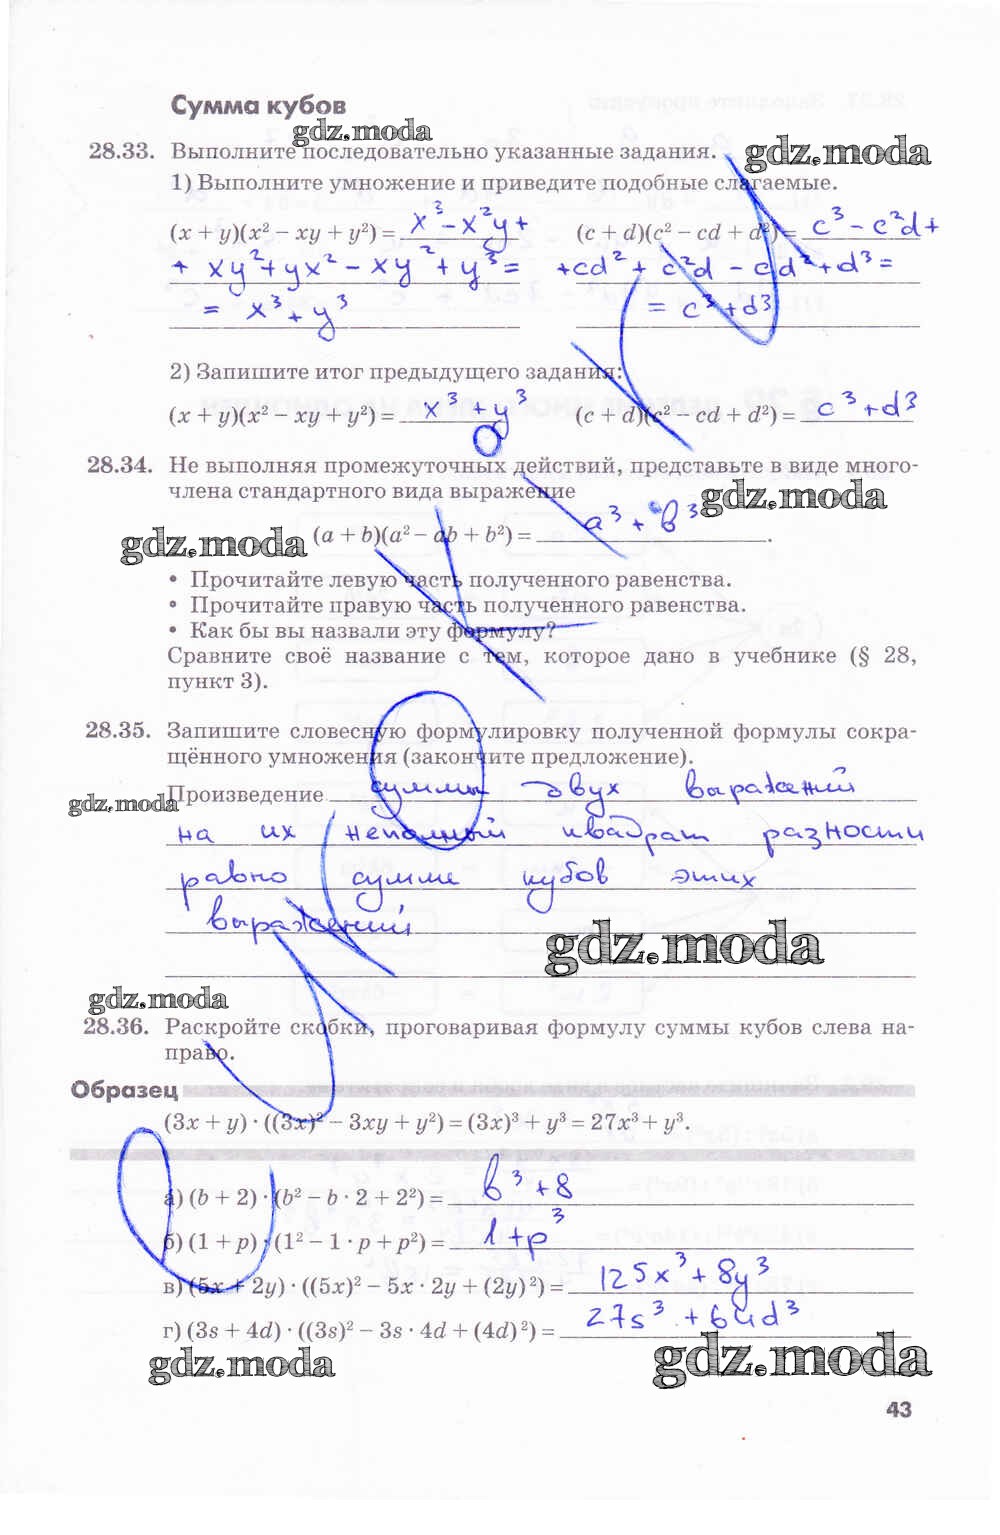 Сумма кубов
gdz.moda
28.33. Выполните последовательно указанные задания.
gdz.moda
1) Выполните умножение и приведите подобные слагаемые.
(x + y)(x² − xy + y²) = x³ − x²y + (c + d)(c² − cd + d²) = c³ − c²d +
+ xy² + yx² − xy² + y³ = +cd² + c²d − cd² + d³ =
= x³ + y³ = c³ + d³
2) Запишите итог предыдущего задания:
(x + y)(x² − xy + y²) = x³ + y³ (c + d)(c² − cd + d²) = c³ + d³
28.34. Не выполняя промежуточных действий, представьте в виде много-
члена стандартного вида выражение
gdz.moda
gdz.moda
(a + b)(a² − ab + b²) = a³ + b³.
• Прочитайте левую часть полученного равенства.
• Прочитайте правую часть полученного равенства.
• Как бы вы назвали эту формулу?
Сравните своё название с тем, которое дано в учебнике (§ 28,
пункт 3).
28.35. Запишите словесную формулировку полученной формулы сокра-
щённого умножения (закончите предложение).
gdz.moda
Произведение суммы двух выражений
на их неполный квадрат разности
равно сумме кубов этих
выражений
gdz.moda
gdz.moda
28.36. Раскройте скобки, проговаривая формулу суммы кубов слева на-
право.
Образец
(3x + y) · ((3x)² − 3xy + y²) = (3x)³ + y³ = 27x³ + y³.
а) (b + 2) · (b² − b · 2 + 2²) = b³ + 8
б) (1 + p) · (1² − 1 · p + p²) = 1 + p³
в) (5x + 2y) · ((5x)² − 5x · 2y + (2y)²) = 125x³ + 8y³
г) (3s + 4d) · ((3s)² − 3s · 4d + (4d)²) = 27s³ + 64d³
gdz.moda
gdz.moda
43